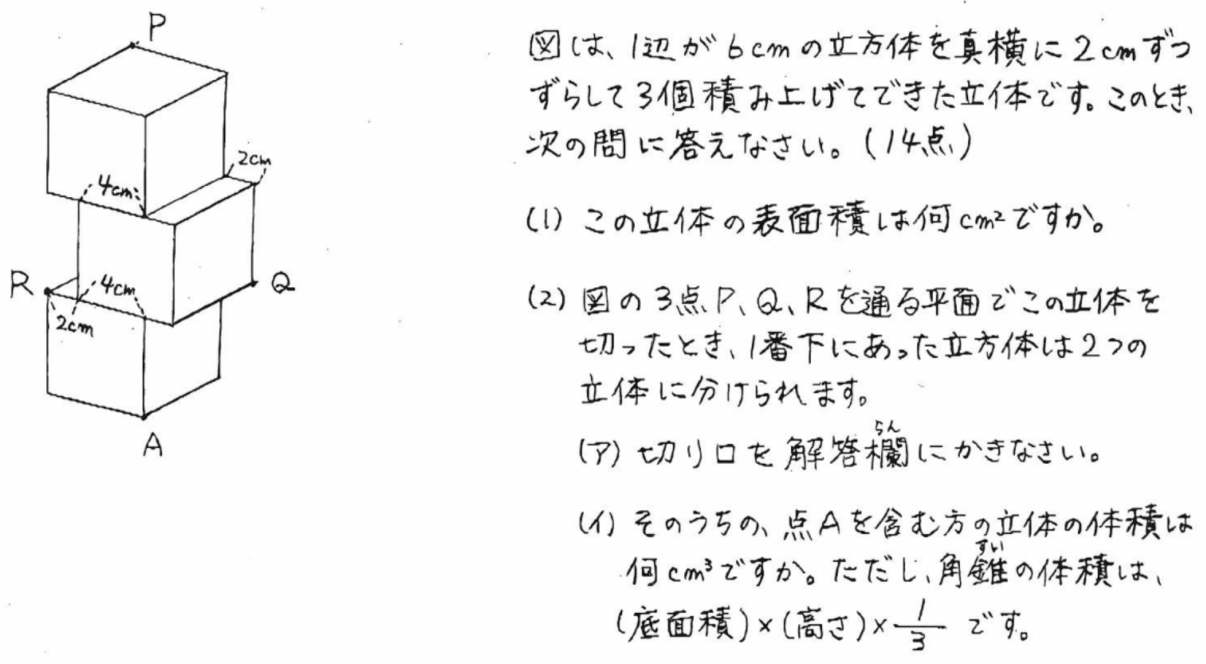 P
2cm
4cm
R
4cm
Q
2cm
A
図は、1辺が6cmの立方体を真横に2cmずつ
ずらして3個積み上げてできた立体です。このとき、
次の問に答えなさい。(14点)
(1) この立体の表面積は何cm²ですか。
(2) 図の3点P、Q、Rを通る平面でこの立体を
切ったとき、1番下にあった立方体は2つの
立体に分けられます。
(ア) 切り口を解答欄にかきなさい。
らん
(イ) そのうちの、点Aを含む方の立体の体積は
何cm³ですか。ただし、角錐の体積は、
すい
(底面積)×(高さ)×1/3 です。